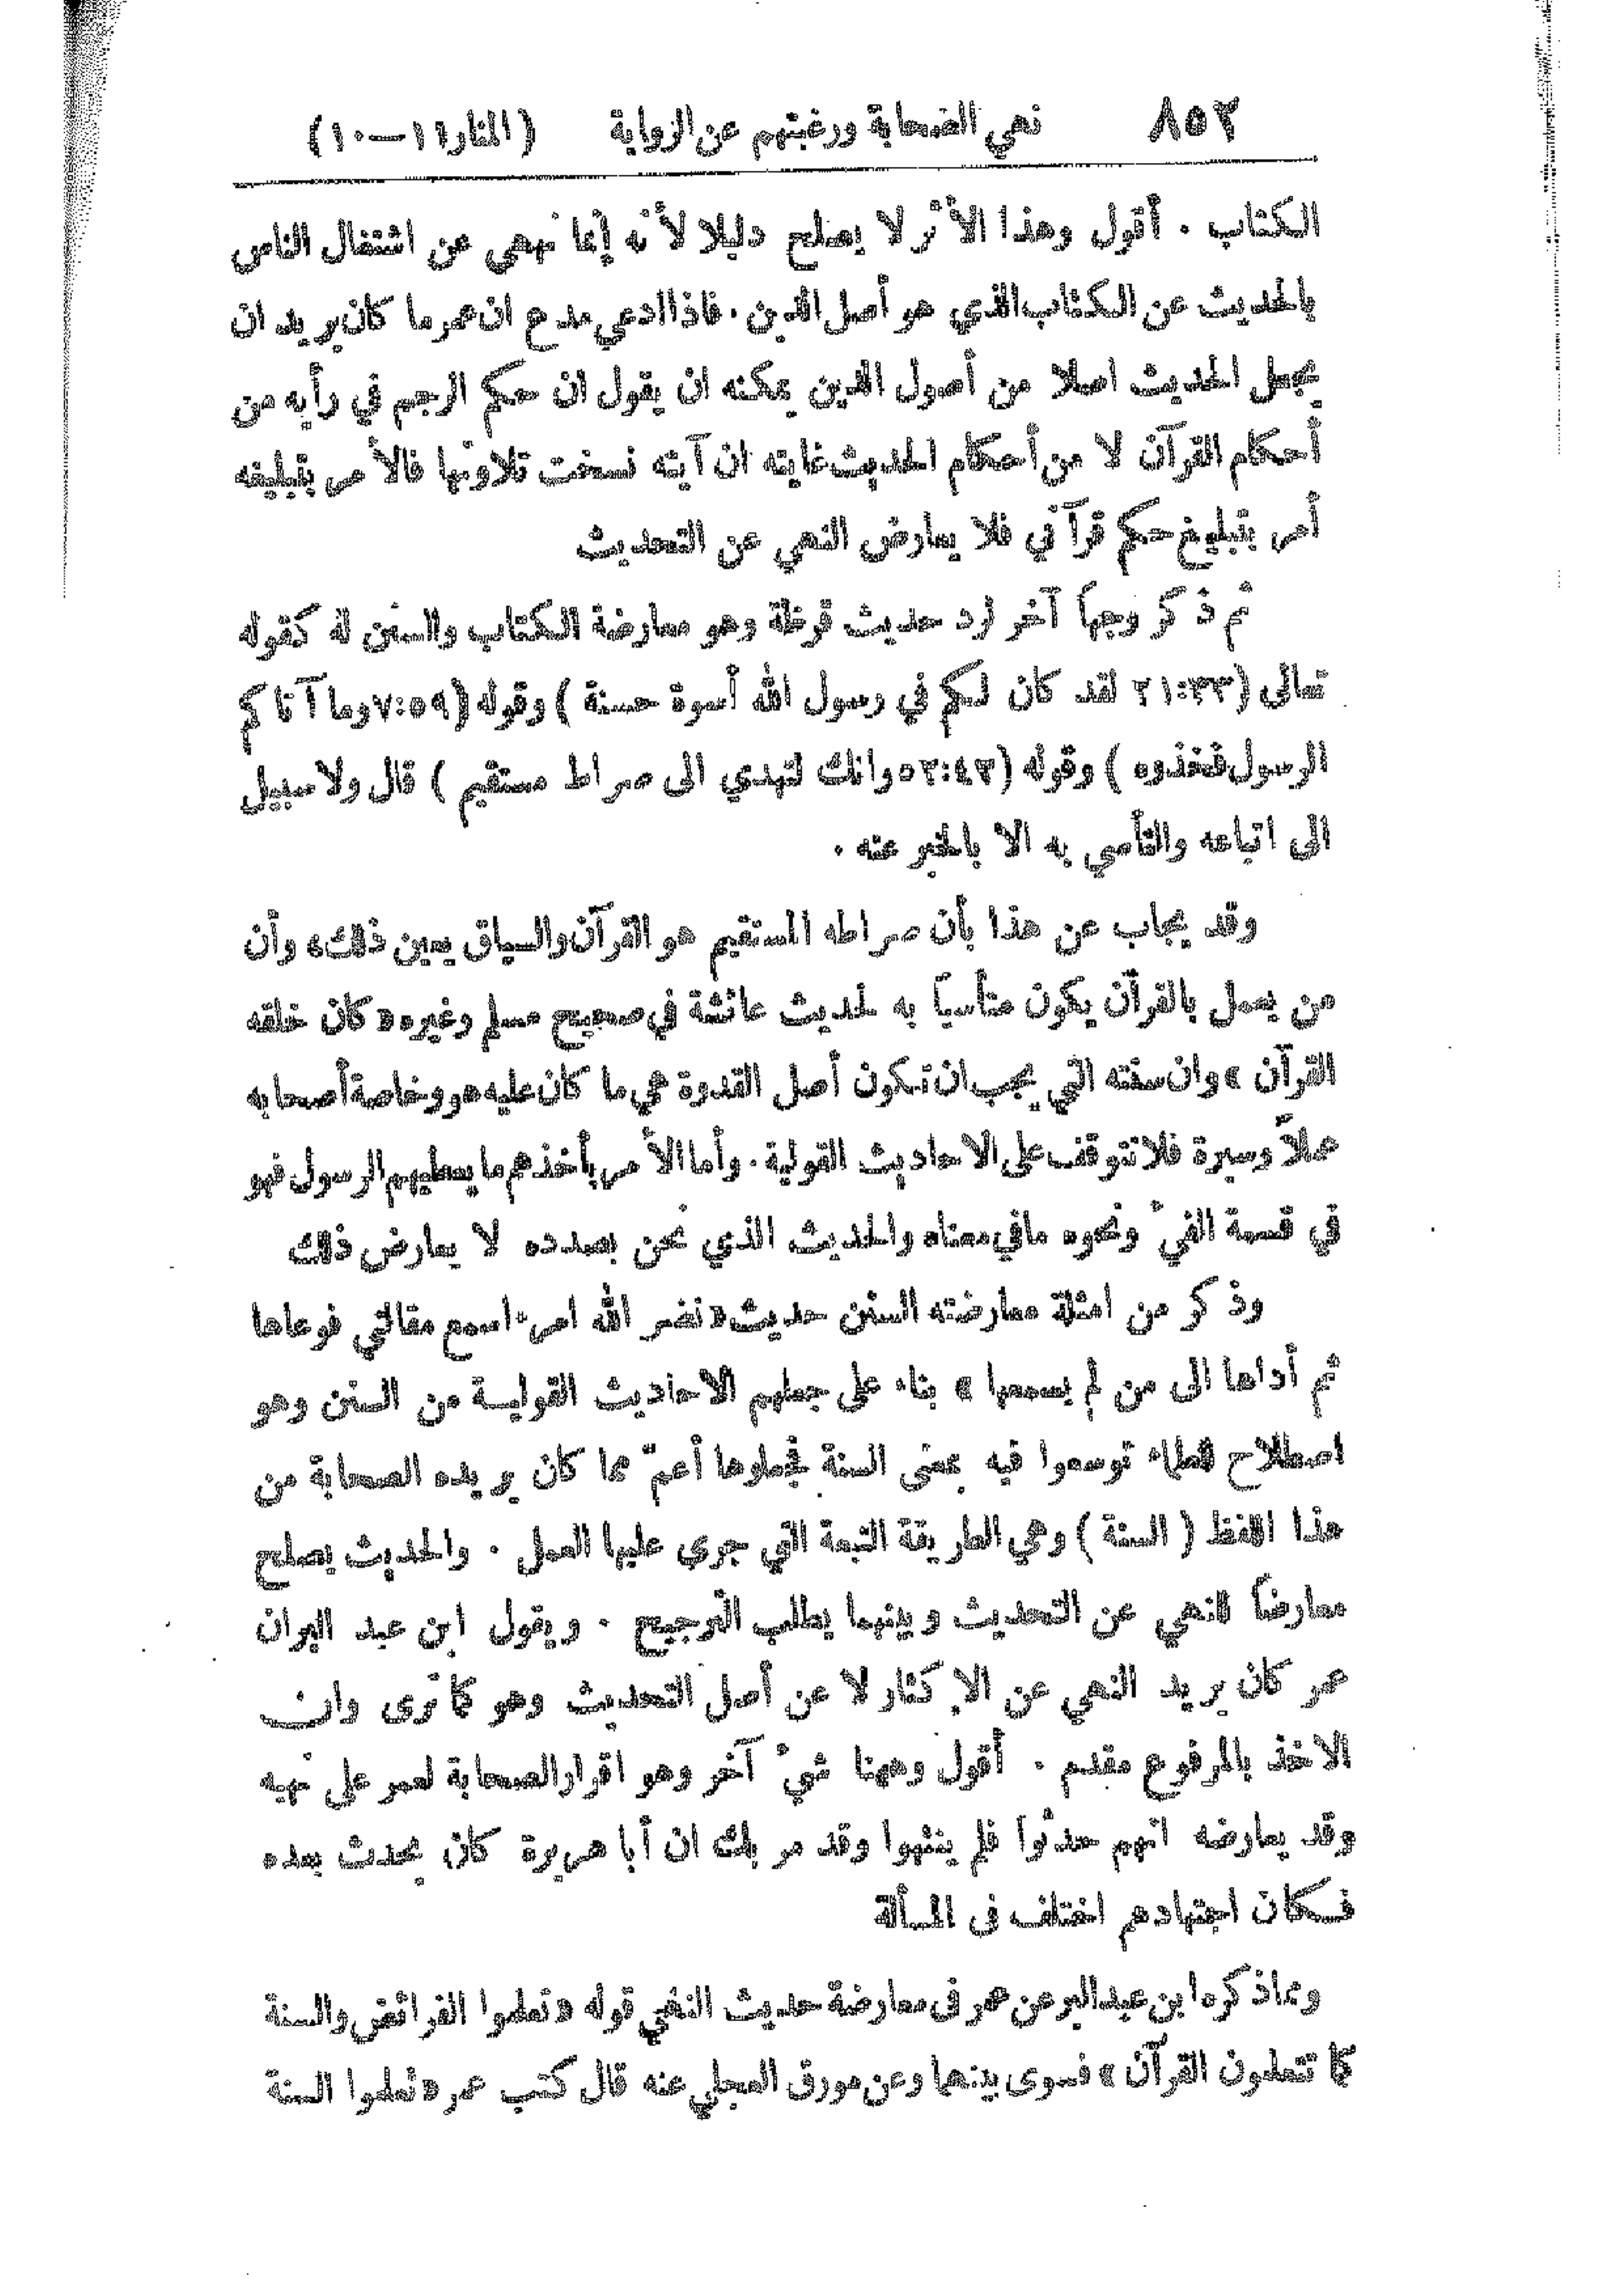 ٨٥٢ نهي الصحابة ورغبتهم عن الرواية (المنار ١١—١٠)
الكتاب . أقول وهذا الأثر لا يصلح دليلا لأنه إنما نهى عن اشتغال الناس
بالحديث عن الكتاب الذي هو أصل الدين . فاذا ادعى مدع ان عمر ما كان يريد ان
يجعل الحديث اصلا من أصول الدين يمكنه ان يقول ان حكم الرجم في رأيه من
أحكام القرآن لا من أحكام الحديث غايته ان آيته نسخت تلاوتها فالأمر بتبليغه
أمر بتبليغ حكم قرآني فلا يعارض النهي عن التحديث
ثم ذكر وجهاً آخر لرد حديث قرظة وهو معارضة الكتاب والسنن له كقوله
تعالى (٢١:٣٣ لقد كان لكم في رسول الله أسوة حسنة ) وقوله (٧:٥٩ وما آتاكم
الرسول فخذوه ) وقوله (٥٢:٤٢ وانك لتهدي الى صراط مستقيم ) قال ولا سبيل
الى اتباعه والتأسي به الا بالخبر عنه .
وقد يجاب عن هذا بأن صراطه المستقيم هو القرآن والسياق يعين ذلك، وأن
من يعمل بالقرآن يكون متأسياً به لحديث عائشة في صحيح مسلم وغيره «كان خلقه
القرآن » وان سنته التي يجب ان تكون أصل القدوة هي ما كان عليه هو وخاصة أصحابه
عملاً وسيرة فلا تتوقف على الاحاديث القولية . وأما الأمر بأخذهم ما يعطيهم الرسول فهو
في قسمة الفيء ونحوه مافي معناه والحديث الذي نحن بصدده لا يعارض ذلك
وذكر من امثلة معارضته السنن حديث «نضر الله امرءا سمع مقالتي فوعاها
ثم أداها الى من لم يسمعها » بناء على جعلهم الاحاديث القولية من السنن وهو
اصطلاح للعلماء توسعوا فيه بمعنى السنة فجعلوها أعمّ مما كان يريده الصحابة من
هذا اللفظ ( السنة ) وهي الطريقة المتبعة التي جرى عليها العمل . والحديث يصلح
معارضاً للنهي عن التحديث وبينهما يطلب الترجيح . ويقول ابن عبد البر ان
عمر كان يريد النهي عن الإكثار لا عن أصل التحديث وهو كما ترى وان
الاخذ بالمرفوع مقدم . أقول وههنا شيء آخر وهو اقرار الصحابة لعمر على نهيه
وقد يعارضه انهم حدثوا فلم ينتهوا وقد مر بك ان أبا هريرة كان يحدث بعده
فكان اجتهادهم اختلف في المسألة
ومماذكره ابن عبد البر عن عمر في معارضة حديث النهي قوله «تعلموا الفرائض والسنة
كما تتعلمون القرآن » فسوى بينهما وعن مورق العجلي عنه قال كتب عمر «تعلموا السنة